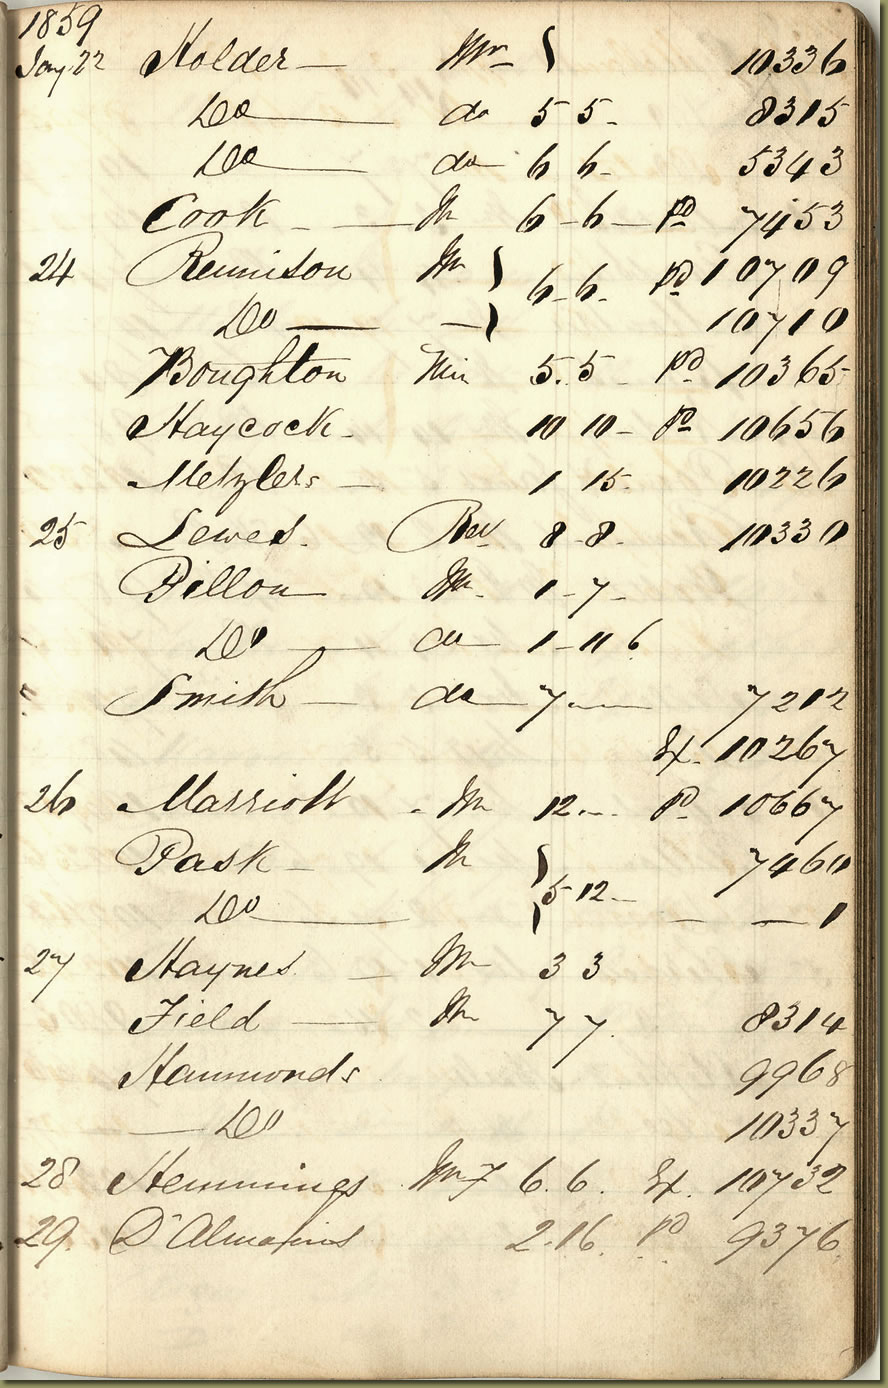 1859
Jany 22 Holder — Mr } 10336
Do — do 5 5 - 8315
Do — do 6 6 - 5343
Cook — Mr 6 - 6 — Pd 7453
24 Rennison Mr } 6 - 6 - Pd 10709
Do — — } 10710
Boughton Min 5. 5 - Pd 10365
Haycock - 10 10 - Pd 10656
Metzlers — 1 15. 10226
25 Lewes. Rev 8 - 8 - 10330
Dillon — Mr - 1 - 7 -
Do — do — 1 - 11 6
Smith — do — 7 — 7212
Ex. 10267
26 Marriott - Mr 12 .. Pd 10667
Pask - Mr } 7460
Do — } 5 12 - — — 1
27 Haynes — Mr 3 3
Field — Mr 7 7. 8314
Hammonds 9968
— Do 10337
28 Hemmings Mr F 6. 6. Ex. 10732
29. D'Almaines 2. 16. Pd 9376.